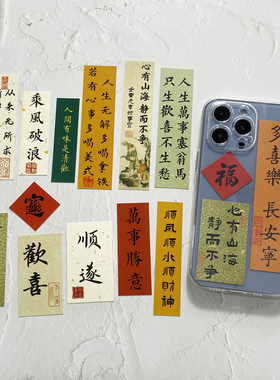 乘風破浪
人間有味是清歡
人生无解多喝拿铁
若有心事多喝美式
心有山海
静而不争
人生萬事塞翁馬
只生歡喜不生愁
歡喜
顺遂
萬事勝意
順風順水順財神
福
多喜樂長安寧
心有山海
静而不争